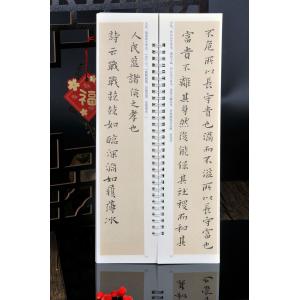 不危所以長守貴也滿而不溢所以長守富也
富貴不離其身然後能保其社稷而和其
人民蓋諸侯之孝也
詩云戰戰兢兢如臨深淵如履薄冰
福